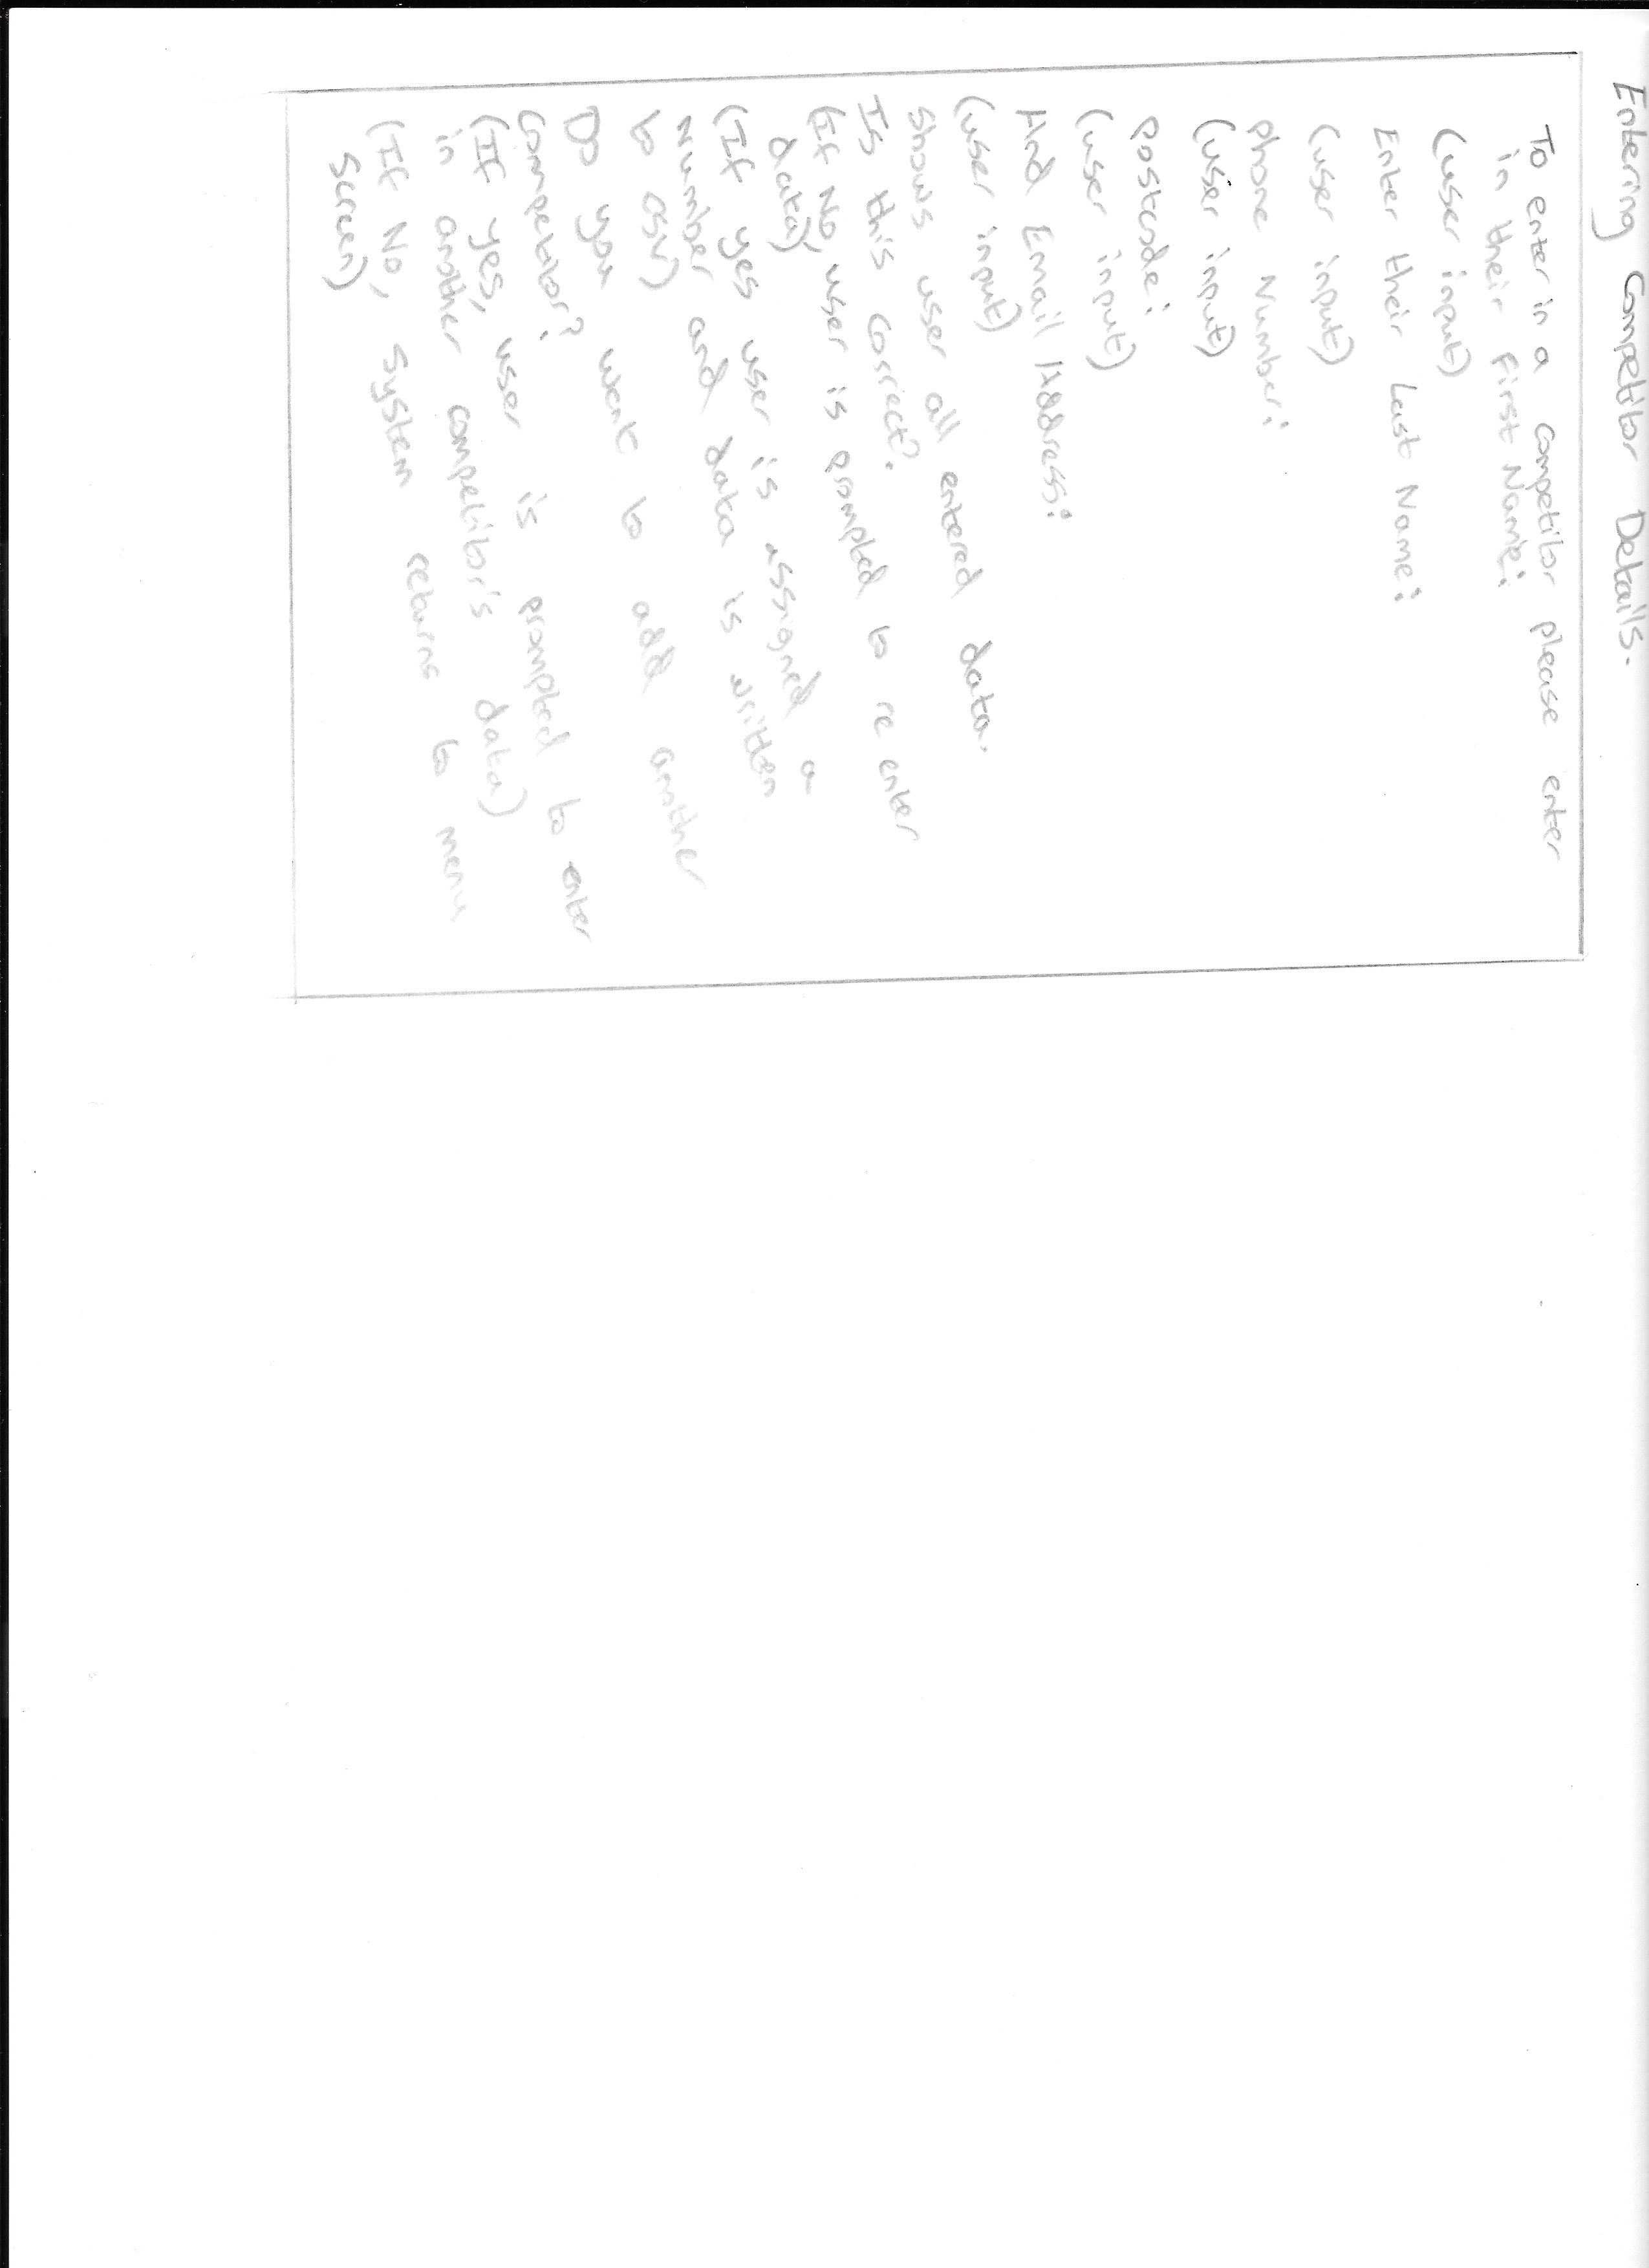 Entering Competitor Details.
To enter in a competitor please enter
in their First Name:
(user input)
Enter their Last Name:
(user input)
phone Number:
(user input)
postcode:
(user input)
And Email Address:
(user input)
shows user all entered data.
Is this Correct?
(If No, user is prompted to re enter
data)
(If yes user is assigned a
Number and data is written
to CSV)
Do you want to add another
Competitor?
(If yes, user is prompted to enter
in another competitor's data)
(If No, system returns to menu
screen)